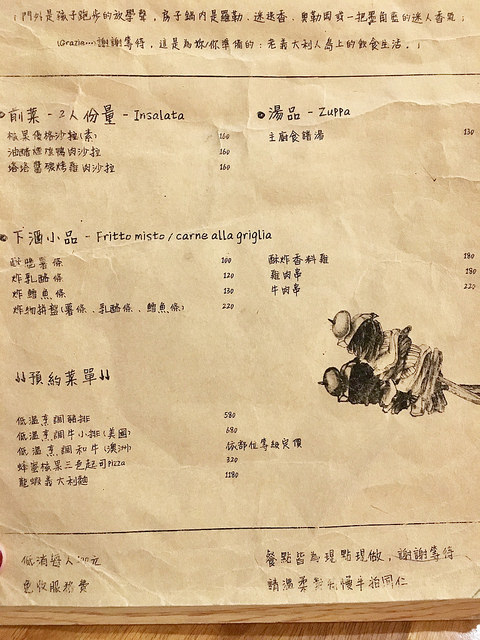 門外是孩子跑步的放學聲，房子鍋內是羅勒、迷迭香、奧勒岡
(Grazie...)謝謝等待，這是為妳/你準備的：老義大利人島上的飲食生活。
前菜 - 2人份量 - Insalata
核果優格沙拉(素) 160
油醋煙燻鴨肉沙拉 160
塔塔醬碳烤雞肉沙拉 160
湯品 - Zuppa
主廚食譜湯 130
下酒小品 - Fritto misto / carne alla griglia
脆薯條 100
炸乳酪條 120
炸鱈魚條 130
炸物拼盤(薯條、乳酪條、鱈魚條) 220
酥炸香料雞 180
雞肉串 180
牛肉串 220
預約菜單
低溫烹調豬排 580
低溫烹調牛小排(美國) 680
低溫烹調和牛(澳洲) 依部位等級定價
蜂蜜核果三色起司Pizza 320
龍蝦義大利麵 1180
低消每人100元
免收服務費
餐點皆為現點現做，謝謝等待
請溫柔對待慢半拍同仁